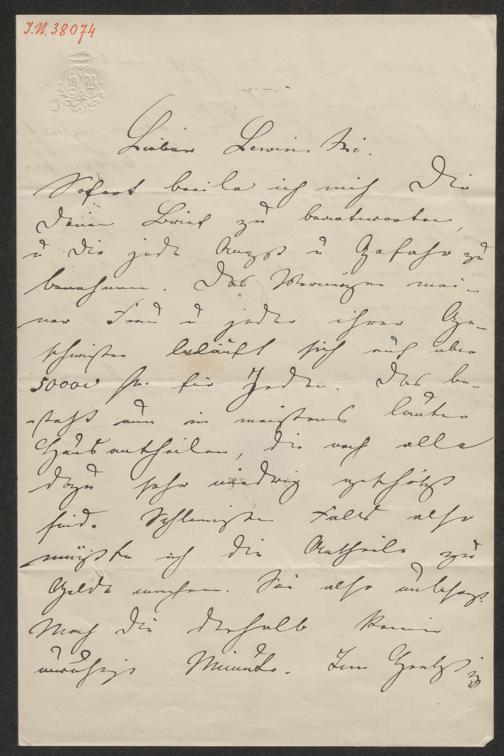 J.N. 38074
Lieber Lewinski.
Sofort beeile ich mich Dir
Deinen Brief zu beantworten,
u Dir jede Angst u Gefahr zu
benehmen. Das Vermögen mei-
ner Frau u jeder ihrer Ge-
schwister beläuft sich auf über
50000 fl. für Jeden. Das be-
steht nun in meistens lauter
Hausantheilen, die noch alle
dazu sehr niedrig geschätzt
sind. Schlimmsten Falls also
müßte ich die Antheile zu
Gelde machen. Sei also unbesorgt.
Mach Dir deshalb keine
unruhige Minute. Im